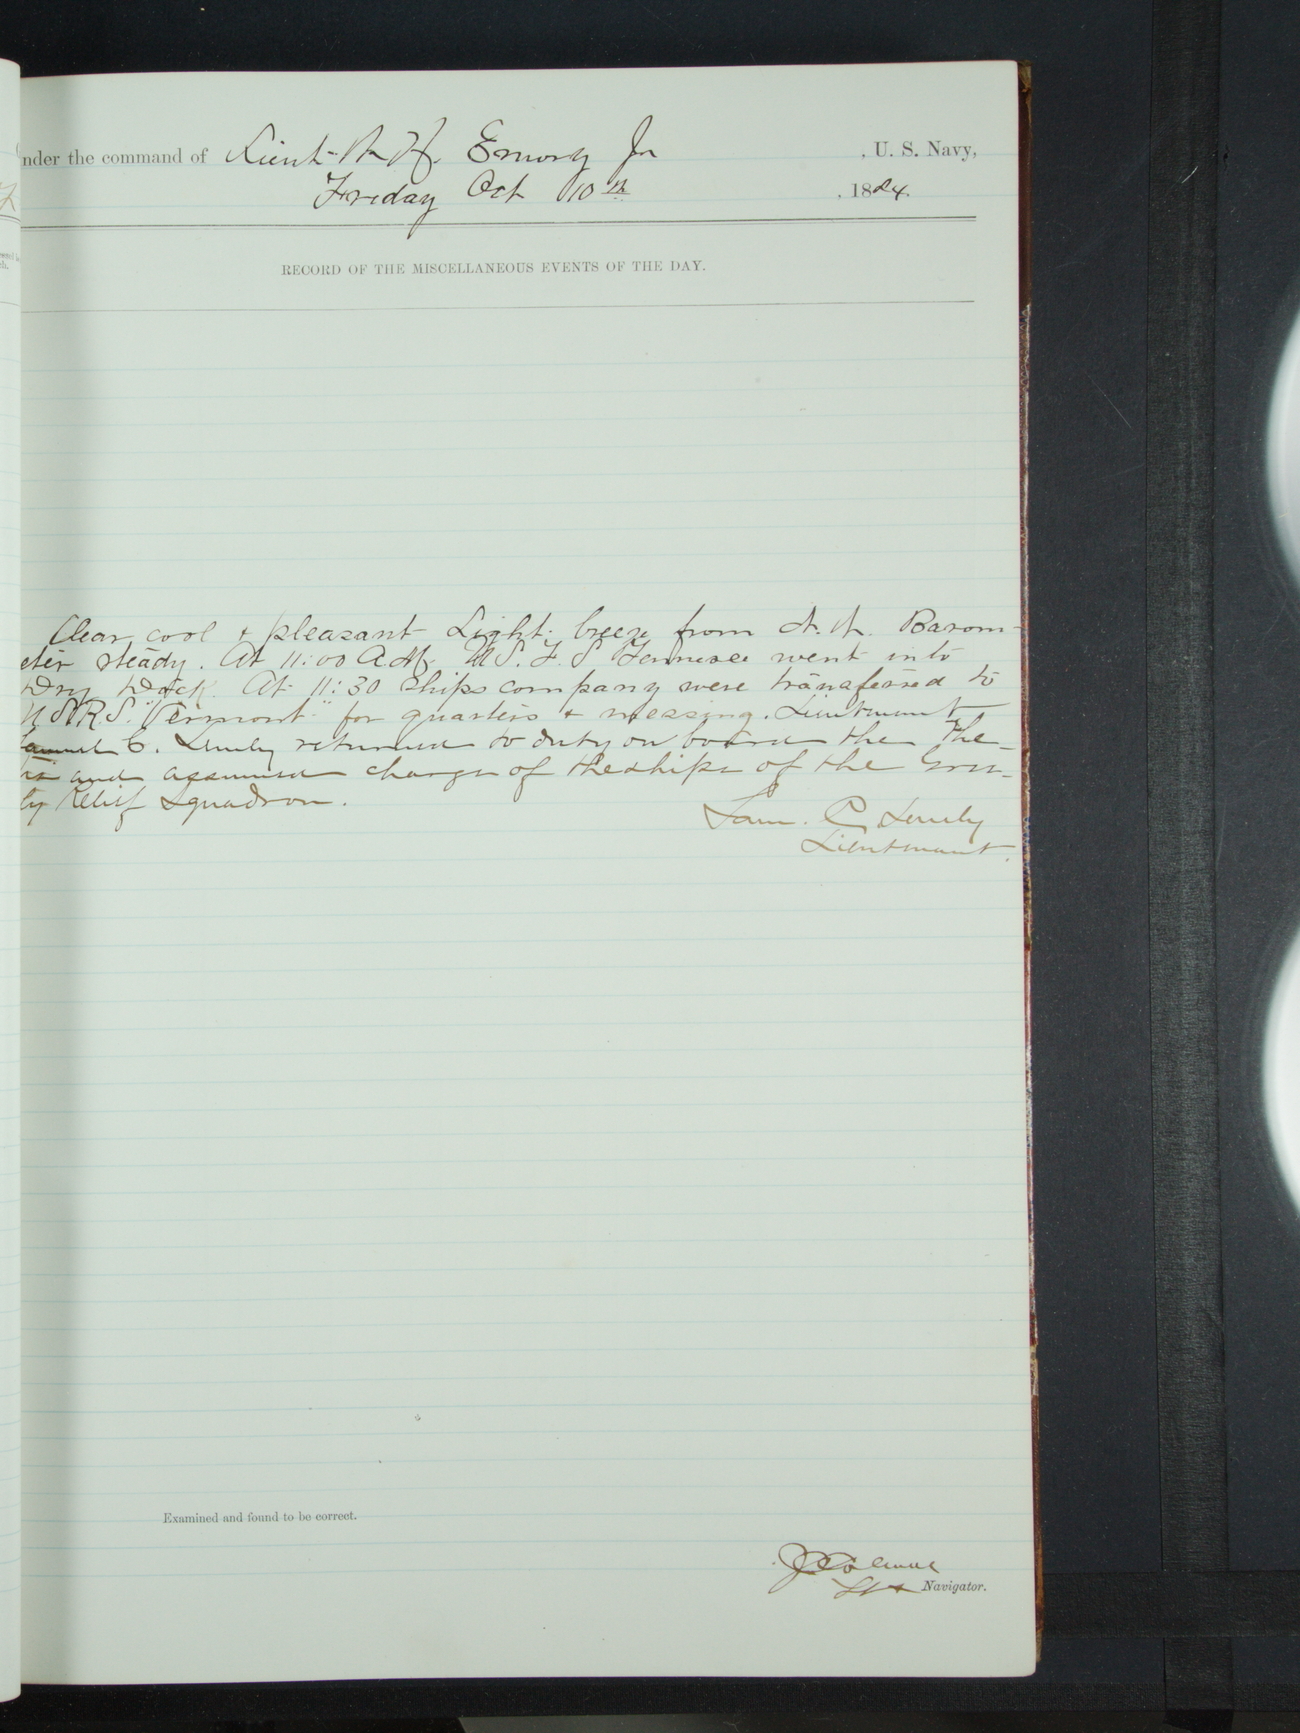 nder the command of Lieut. W. H. Emory Jr , U. S. Navy,
Friday Oct 10th , 1884.
RECORD OF THE MISCELLANEOUS EVENTS OF THE DAY.
Clear, cool & pleasant Light breeze from N. W. Barom-
eter steady. At 11:00 A.M. U.S. F. S Tennessee went into
Dry Dock. At 11:30 ships company were transferred to
U.S.R.S. "Vermont" for quarters & messing. Lieutenant
Samuel C. Lemly returned to duty on board the The-
tis and assumed charge of the ships of the Gree-
ly Relief Squadron.
Sam. C. Lemly
Lieutenant.
Examined and found to be correct.
Navigator.